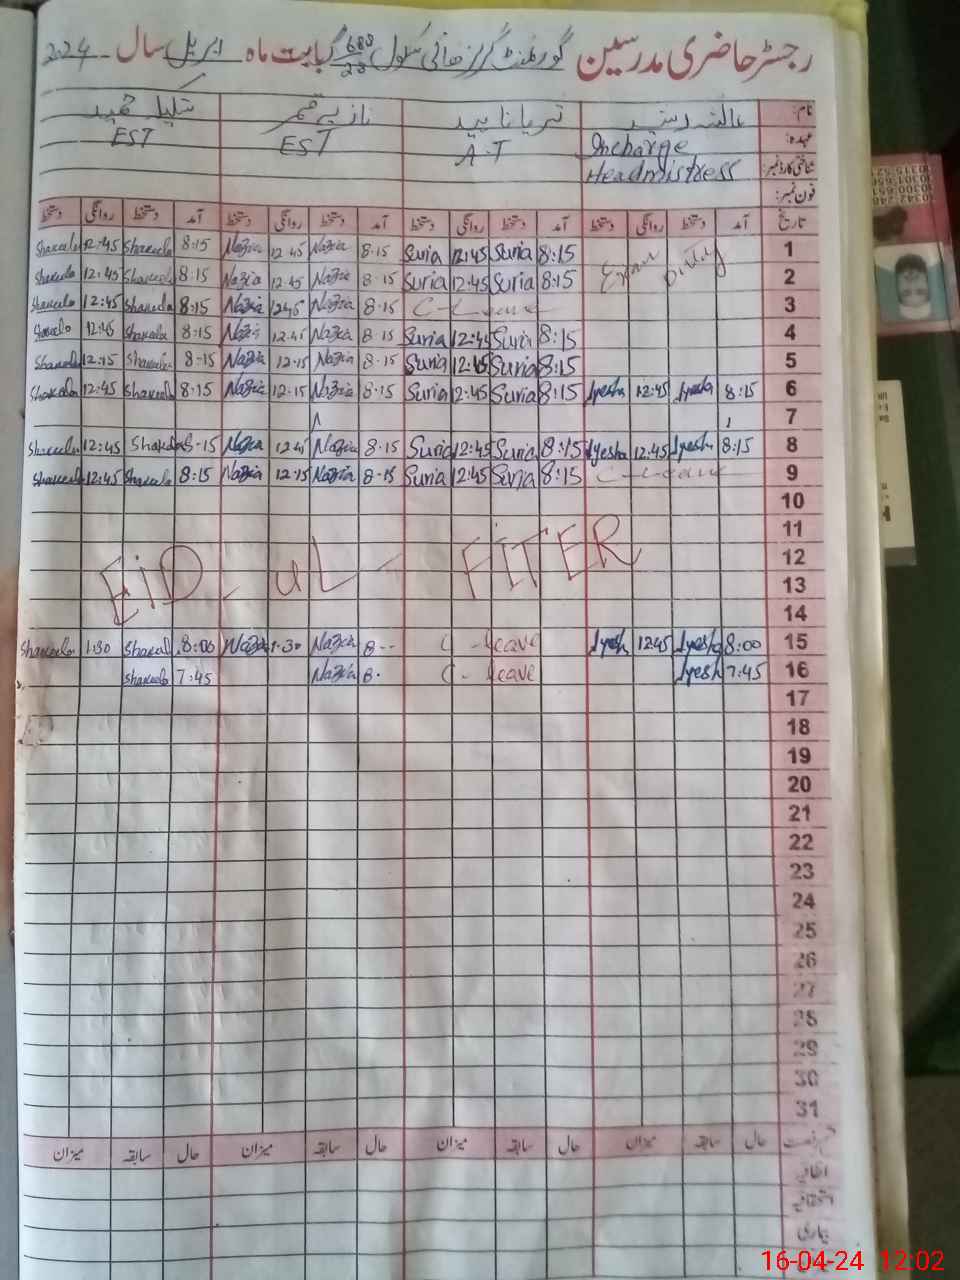 رجسٹر حاضری مدرسین گورنمنٹ گرلز ہائی سکول 688/23 گ ب بابت ماہ اپریل سال 2024
نام: عائشہ رشید ثریا ناہید نازیہ قمر شکیلہ حمید
عہدہ: Incharge A.T EST EST
شناختی کارڈ نمبر: Headmistress
فون نمبر:
تاریخ آمد دستخط روانگی دستخط آمد دستخط روانگی دستخط آمد دستخط روانگی دستخط آمد دستخط روانگی دستخط
1 Exam Duty 8:15 Suria 12:45 Suria 8:15 Nazia 12:45 Nazia 8:15 Shakeela 12:45 Shakeela
2 8:15 Suria 12:45 Suria 8:15 Nazia 12:45 Nazia 8:15 Shakeela 12:45 Shakeela
3 C-Leave 8:15 Nazia 12:45 Nazia 8:15 Shakeela 12:45 Shakeela
4 8:15 Suria 12:45 Suria 8:15 Nazia 12:45 Nazia 8:15 Shakeela 12:45 Shakeela
5 8:15 Suria 12:45 Suria 8:15 Nazia 12:15 Nazia 8:15 Shakeela 12:15 Shakeela
6 8:15 Iyesha 12:45 Iyesha 8:15 Suria 12:45 Suria 8:15 Nazia 12:15 Nazia 8:15 Shakeela 12:45 Shakeela
7
8 8:15 Iyesha 12:45 Iyesha 8:15 Suria 12:45 Suria 8:15 Nazia 12:45 Nazia 8:15 Shakeela 12:45 Shakeela
9 C-Leave 8:15 Suria 12:45 Suria 8:15 Nazia 12:15 Nazia 8:15 Shakeela 12:45 Shakeela
10
11
12 EiD - uL - FITER
13
14
15 8:00 Iyesha 12:45 Iyesh C-leave 8 Nazia 1:30 Nazia 8:00 Shakeel 1:30 Shakeela
16 7:45 Iyesh C-leave 8 Nazia 7:45 Shakeela
17
18
19
20
21
22
23
24
25
26
27
28
29
30
31
حال سابقہ میزان حال سابقہ میزان حال سابقہ میزان حال سابقہ میزان
اتفاقیہ
استحقاقیہ
بیماری
16-04-24 12:02